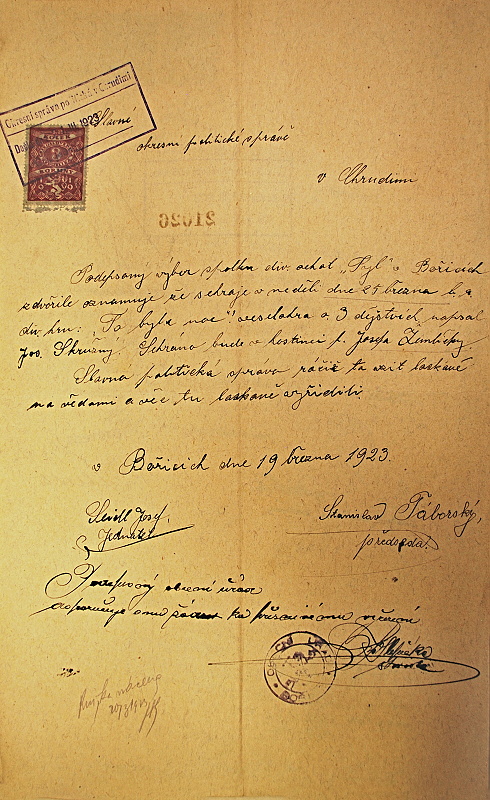 Okresní správa politická v Chrudimi
Došlo III. 1923
KOLEK
KORUNY
Slavné
okresní politické správě
v Chrudimi
21026
Podepsaný výbor spolku div. ochot. „Tyl" v Bořicích
zdvořile oznamuje že sehraje v neděli dne 25 března b. r.
div. hru: „To byla noc" veselohra o 3 dejstvích, napsal
Jos. Skružný. Sehrána bude v hostinci p. Josefa
Slavná politická správa račiž to vzít laskavě
na vědomí a věc tu laskavě vyříditi.
v Bořicích dne 19 března 1923.
Seidl Josef, Stanislav Táborský,
jednatel předseda.
Podepsaný obecní úřad
doporučuje onu žádost ku příznivému vyřízení
starosta